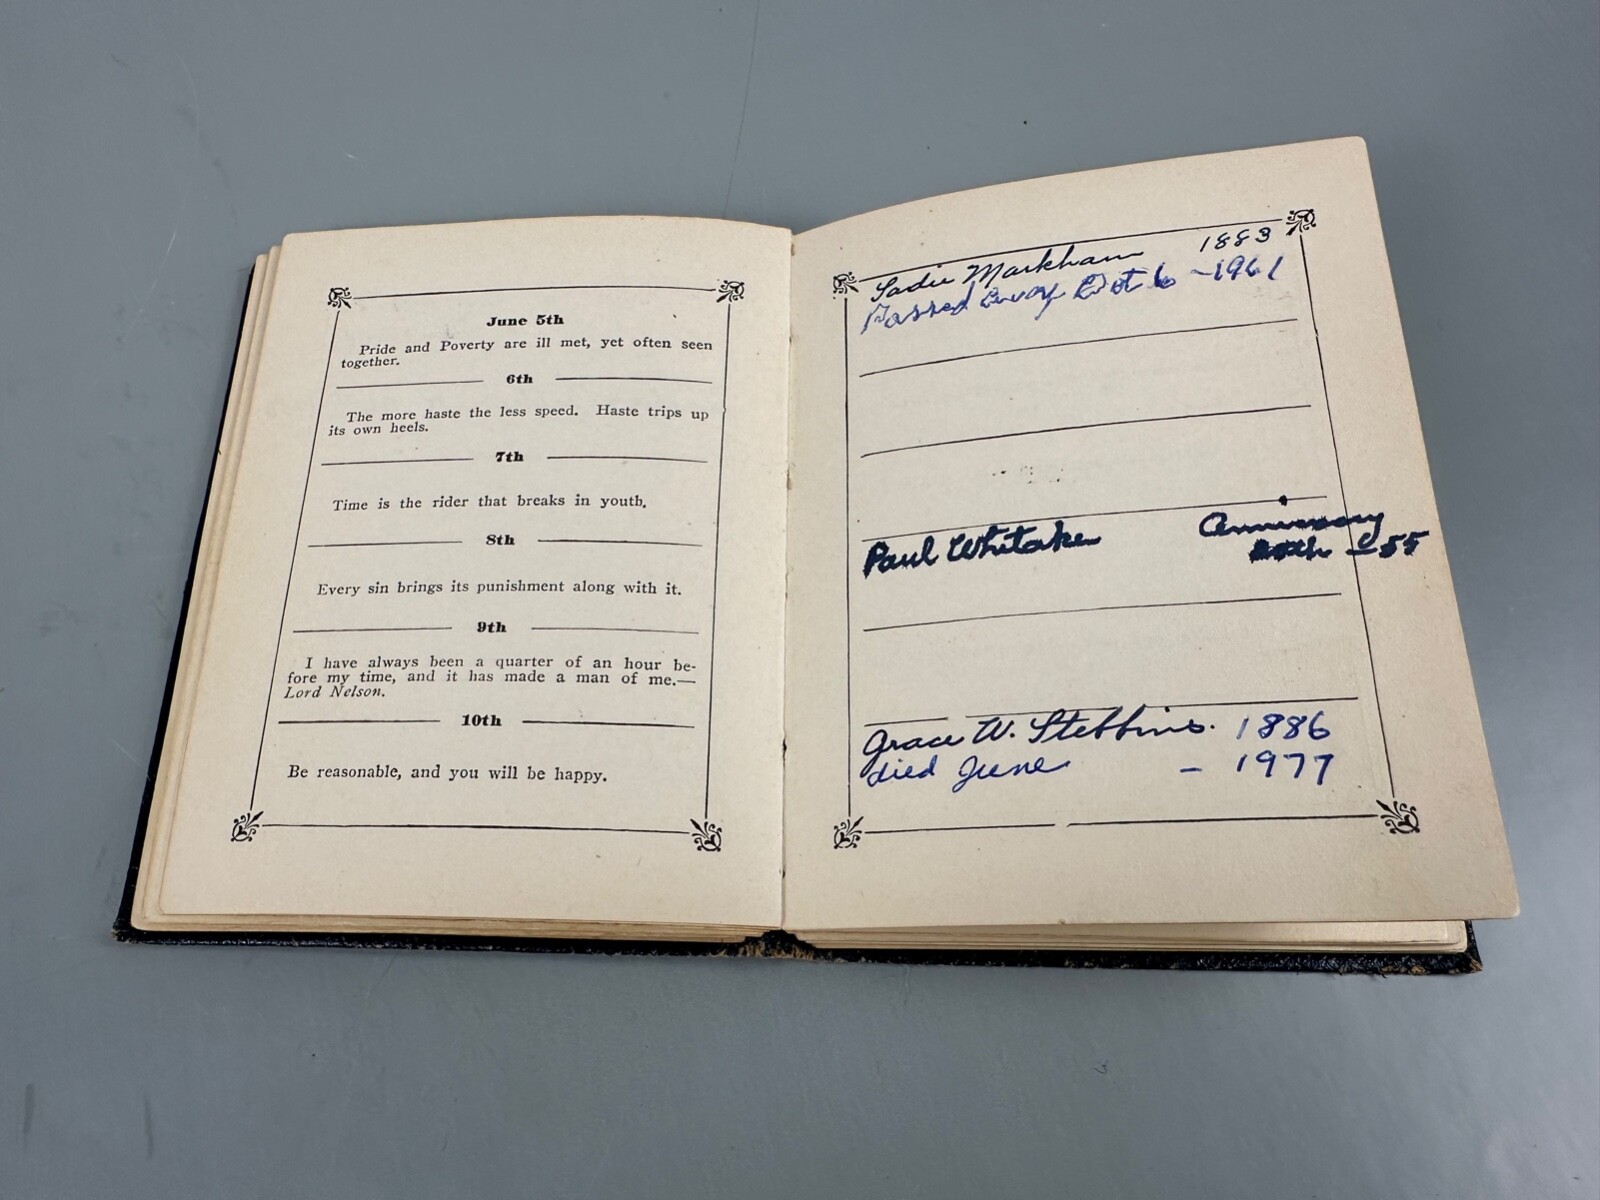 June 5th
Pride and Poverty are ill met, yet often seen
together.
6th
The more haste the less speed. Haste trips up
its own heels.
7th
Time is the rider that breaks in youth.
8th
Every sin brings its punishment along with it.
9th
I have always been a quarter of an hour be-
fore my time, and it has made a man of me.—
Lord Nelson.
10th
Be reasonable, and you will be happy.
Sadie Markham 1883
Passed away Oct 6 -1961
Paul Whitake
- 55
Grace W. Stebbins. 1886
died June - 1977